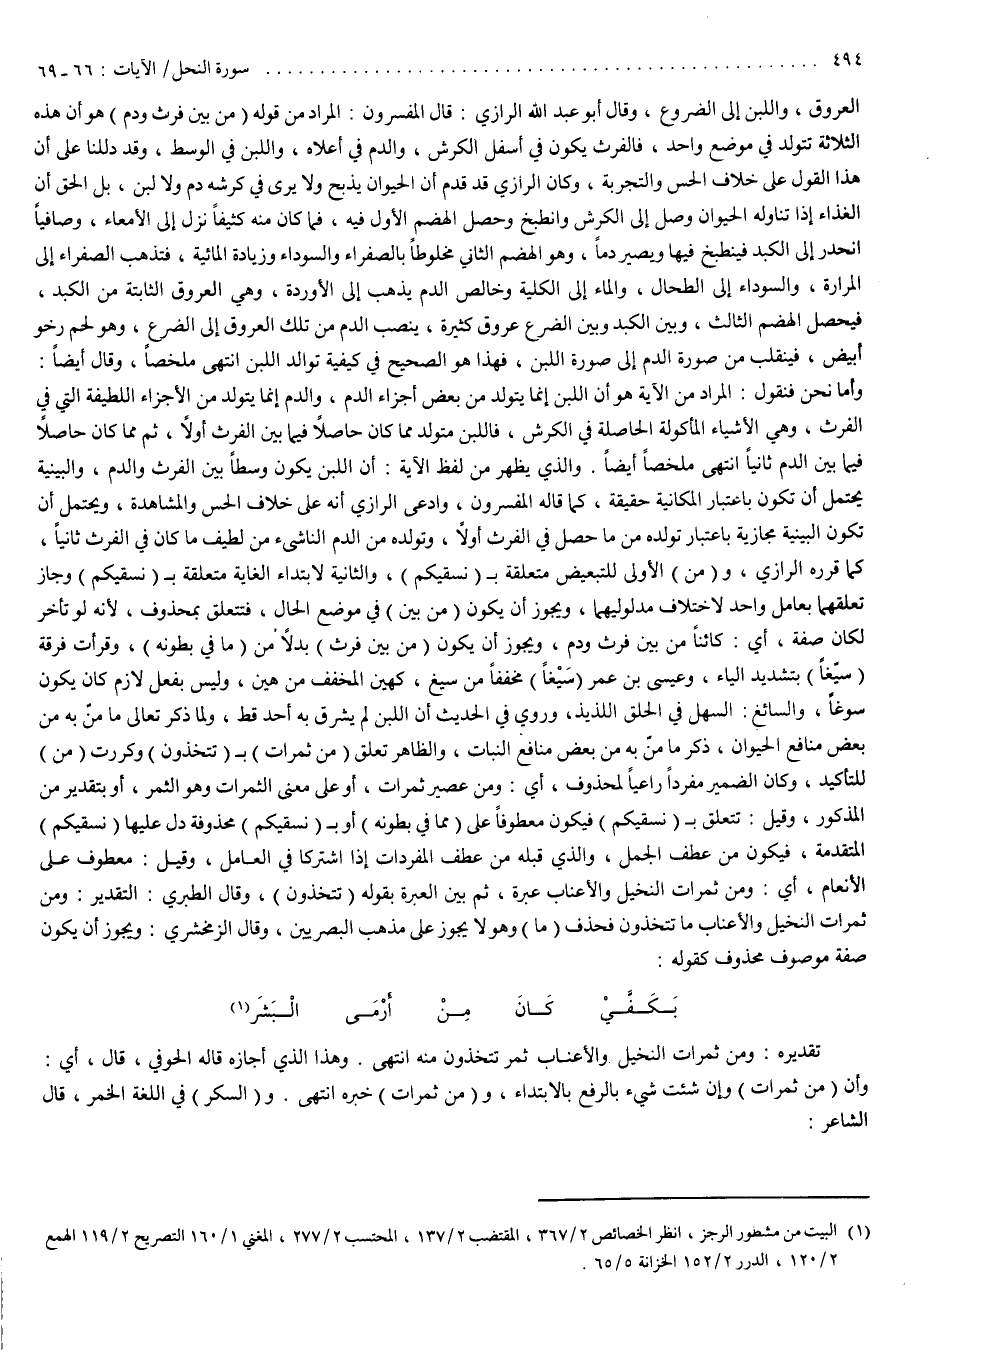 ٤٩٤ ........................................ سورة النحل/ الآيات : ٦٦ ـ ٦٩
العروق ، واللبن إلى الضروع ، وقال أبو عبد الله الرازي : قال المفسرون : المراد من قوله ( من بين فرث ودم ) هو أن هذه
الثلاثة تتولد في موضع واحد ، فالفرث يكون في أسفل الكرش ، والدم في أعلاه ، واللبن في الوسط ، وقد دللنا على أن
هذا القول على خلاف الحس والتجربة ، وكان الرازي قد قدم أن الحيوان يذبح ولا يرى في كرشه دم ولا لبن ، بل الحق أن
الغذاء إذا تناوله الحيوان وصل إلى الكرش وانطبخ وحصل الهضم الأول فيه ، فما كان منه كثيفاً نزل إلى الأمعاء ، وصافياً
انحدر إلى الكبد فينطبخ فيها ويصير دماً ، وهو الهضم الثاني مخلوطاً بالصفراء والسوداء وزيادة المائية ، فتذهب الصفراء إلى
المرارة ، والسوداء إلى الطحال ، والماء إلى الكلية وخالص الدم يذهب إلى الأوردة ، وهي العروق الثابتة من الكبد ،
فيحصل الهضم الثالث ، وبين الكبد وبين الضرع عروق كثيرة ، ينصب الدم من تلك العروق إلى الضرع ، وهو لحم رخو
أبيض ، فينقلب من صورة الدم إلى صورة اللبن ، فهذا هو الصحيح في كيفية توالد اللبن انتهى ملخصاً ، وقال أيضاً :
وأما نحن فنقول : المراد من الآية هو أن اللبن إنما يتولد من بعض أجزاء الدم ، والدم إنما يتولد من الأجزاء اللطيفة التي في
الفرث ، وهي الأشياء المأكولة الحاصلة في الكرش ، فاللبن متولد مما كان حاصلاً فيما بين الفرث أولاً ، ثم مما كان حاصلاً
فيما بين الدم ثانياً انتهى ملخصاً أيضاً . والذي يظهر من لفظ الآية : أن اللبن يكون وسطاً بين الفرث والدم ، والبينية
يحتمل أن تكون باعتبار المكانية حقيقة ، كما قاله المفسرون ، وادعى الرازي أنه على خلاف الحس والمشاهدة ، ويحتمل أن
تكون البينية مجازية باعتبار تولده من ما حصل في الفرث أولاً ، وتولده من الدم الناشىء من لطيف ما كان في الفرث ثانياً ،
كما قرره الرازي ، و( من ) الأولى للتبعيض متعلقة بـ ( نسقيكم ) ، والثانية لابتداء الغاية متعلقة بـ ( نسقيكم ) وجاز
تعلقهما بعامل واحد لاختلاف مدلوليهما ، ويجوز أن يكون ( من بين ) في موضع الحال ، فتتعلق بمحذوف ، لأنه لو تأخر
لكان صفة ، أي : كائناً من بين فرث ودم ، ويجوز أن يكون ( من بين فرث ) بدلاً من ( ما في بطونه ) ، وقرأت فرقة
( سيّغاً ) بتشديد الياء ، وعيسى بن عمر (سَيْغاً ) مخففاً من سيغ ، كهين المخفف من هين ، وليس بفعل لازم كان يكون
سوغاً ، والسائغ : السهل في الحلق اللذيذ، وروي في الحديث أن اللبن لم يشرق به أحد قط ، ولما ذكر تعالى ما منّ به من
بعض منافع الحيوان ، ذكر ما منّ به من بعض منافع النبات ، والظاهر تعلق ( من ثمرات ) بـ ( تتخذون ) وكررت ( من )
للتأكيد ، وكان الضمير مفرداً راعياً لمحذوف ، أي : ومن عصير ثمرات ، أو على معنى الثمرات وهو الثمر ، أو بتقدير من
المذكور ، وقيل : تتعلق بـ ( نسقيكم ) فيكون معطوفاً على ( مما في بطونه ) أو بـ ( نسقيكم ) محذوفة دل عليها ( نسقيكم )
المتقدمة ، فيكون من عطف الجمل ، والذي قبله من عطف المفردات إذا اشتركا في العامل ، وقيل : معطوف على
الأنعام ، أي : ومن ثمرات النخيل والأعناب عبرة ، ثم بين العبرة بقوله ( تتخذون ) ، وقال الطبري : التقدير : ومن
ثمرات النخيل والأعناب ما تتخذون فحذف ( ما ) وهو لا يجوز على مذهب البصريين ، وقال الزمخشري : ويجوز أن يكون
صفة موصوف محذوف كقوله :
بَـكَـفَّـيْ كَـانَ مِـنْ أَرْمَـى الْـبَشَرَ(١)
تقديره : ومن ثمرات النخيل والأعناب ثمر تتخذون منه انتهى . وهذا الذي أجازه قاله الحوفي ، قال ، أي :
وأن ( من ثمرات ) وإن شئت شيء بالرفع بالابتداء ، و( من ثمرات ) خبره انتهى . و( السكر ) في اللغة الخمر ، قال
الشاعر :
(١) البيت من مشطور الرجز ، انظر الخصائص ٣٦٧/٢ ، المقتضب ١٣٧/٢ ، المحتسب ٢٧٧/٢ ، المغني ١٦٠/١ التصريح ١١٩/٢ الهمع
١٢٠/٢ ، الدرر ١٥٢/٢ الخزانة ٦٥/٥ .